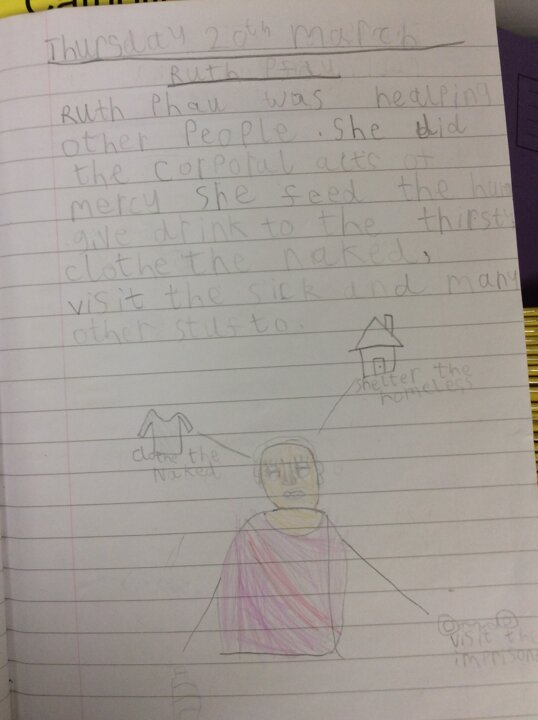 Thursday 20th March
Ruth Pfau
Ruth Phau was healping
other People. She did
the corporal acts of
mercy she feed the hun
give drink to the thirsty
clothe the naked,
visit the sick and many
other stuf to.
shelter the
homeless
clothe the
Naked
visit the
imprison